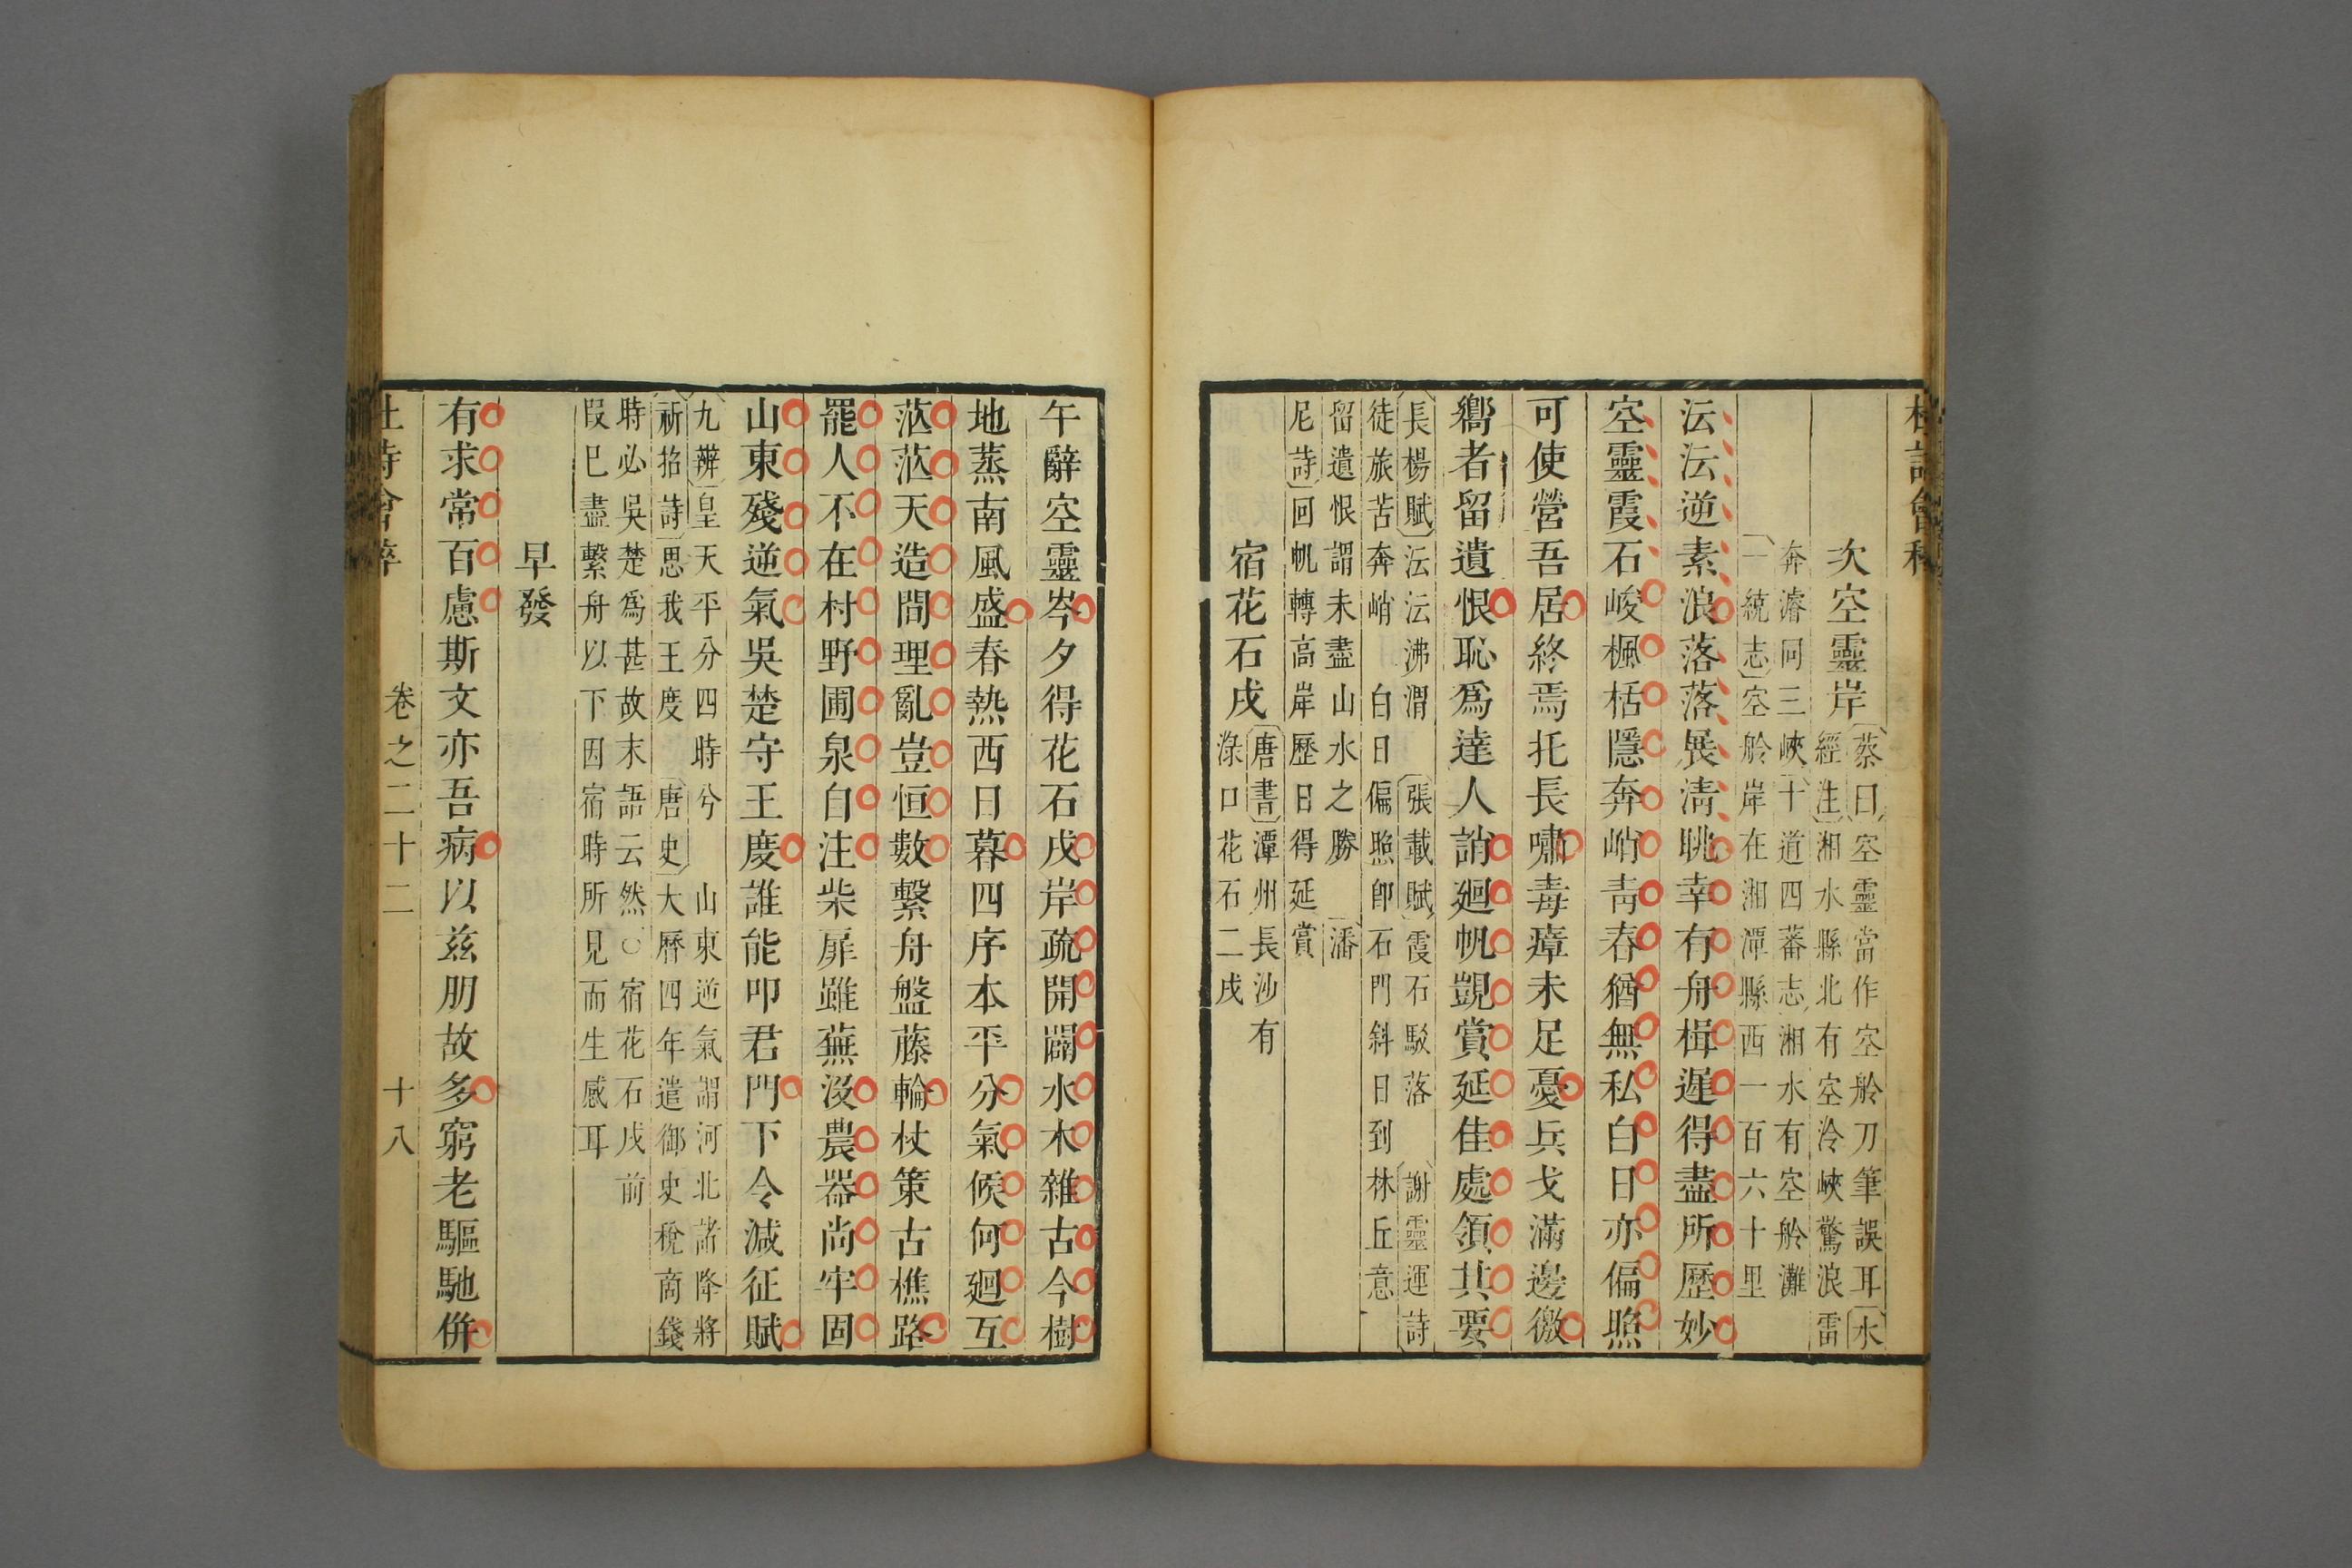 次空靈岸〔蔡曰〕空靈當作空舲刀筆誤耳〔水
經注〕湘水縣北有空泠峽驚浪雷
奔濬同三峽〔十道四蕃志〕湘水有空舲灘
〔一統志〕空舲岸在湘潭縣西一百六十里
沄沄逆素浪落落展淸眺幸有舟楫遲得盡所歷妙
空靈霞石峻楓栝隱奔峭靑春猶無私白日亦偏照
可使營吾居終焉托長嘯毒瘴未足憂兵戈滿邊徼
嚮者留遺恨恥爲達人誚廻帆覬賞延佳處領其要
〔長楊賦〕沄沄沸渭〔張載賦〕霞石駁落〔謝靈運詩〕
徒旅苦奔峭 白日偏照卽石門斜日到林丘意
留遺恨謂未盡山水之勝〔潘
尼詩〕回帆轉高岸歷日得延賞
宿花石戍〔唐書〕潭州長沙有
淥口花石二戍
午辭空靈岑夕得花石戍岸疏開闢水木雜古今樹
地蒸南風盛春熱西日暮四序本平分氣候何廻互
茫茫天造間理亂豈恒數繫舟盤藤輪杖策古樵路
罷人不在村野圃泉自注柴扉雖蕪沒農器尚牢固
山東殘逆氣吳楚守王度誰能叩君門下令減征賦
九辨〔皇天平分四時兮 山東逆氣謂河北諸降將
〔祈招詩〕思我王度〔唐史〕大曆四年遣御史稅商錢
時必吳楚爲甚故末語云然○宿花石戍前
段已盡繫舟以下因宿時所見而生感耳
早發
有求常百慮斯文亦吾病以兹朋故多窮老驅馳併
卷之二十二 十八